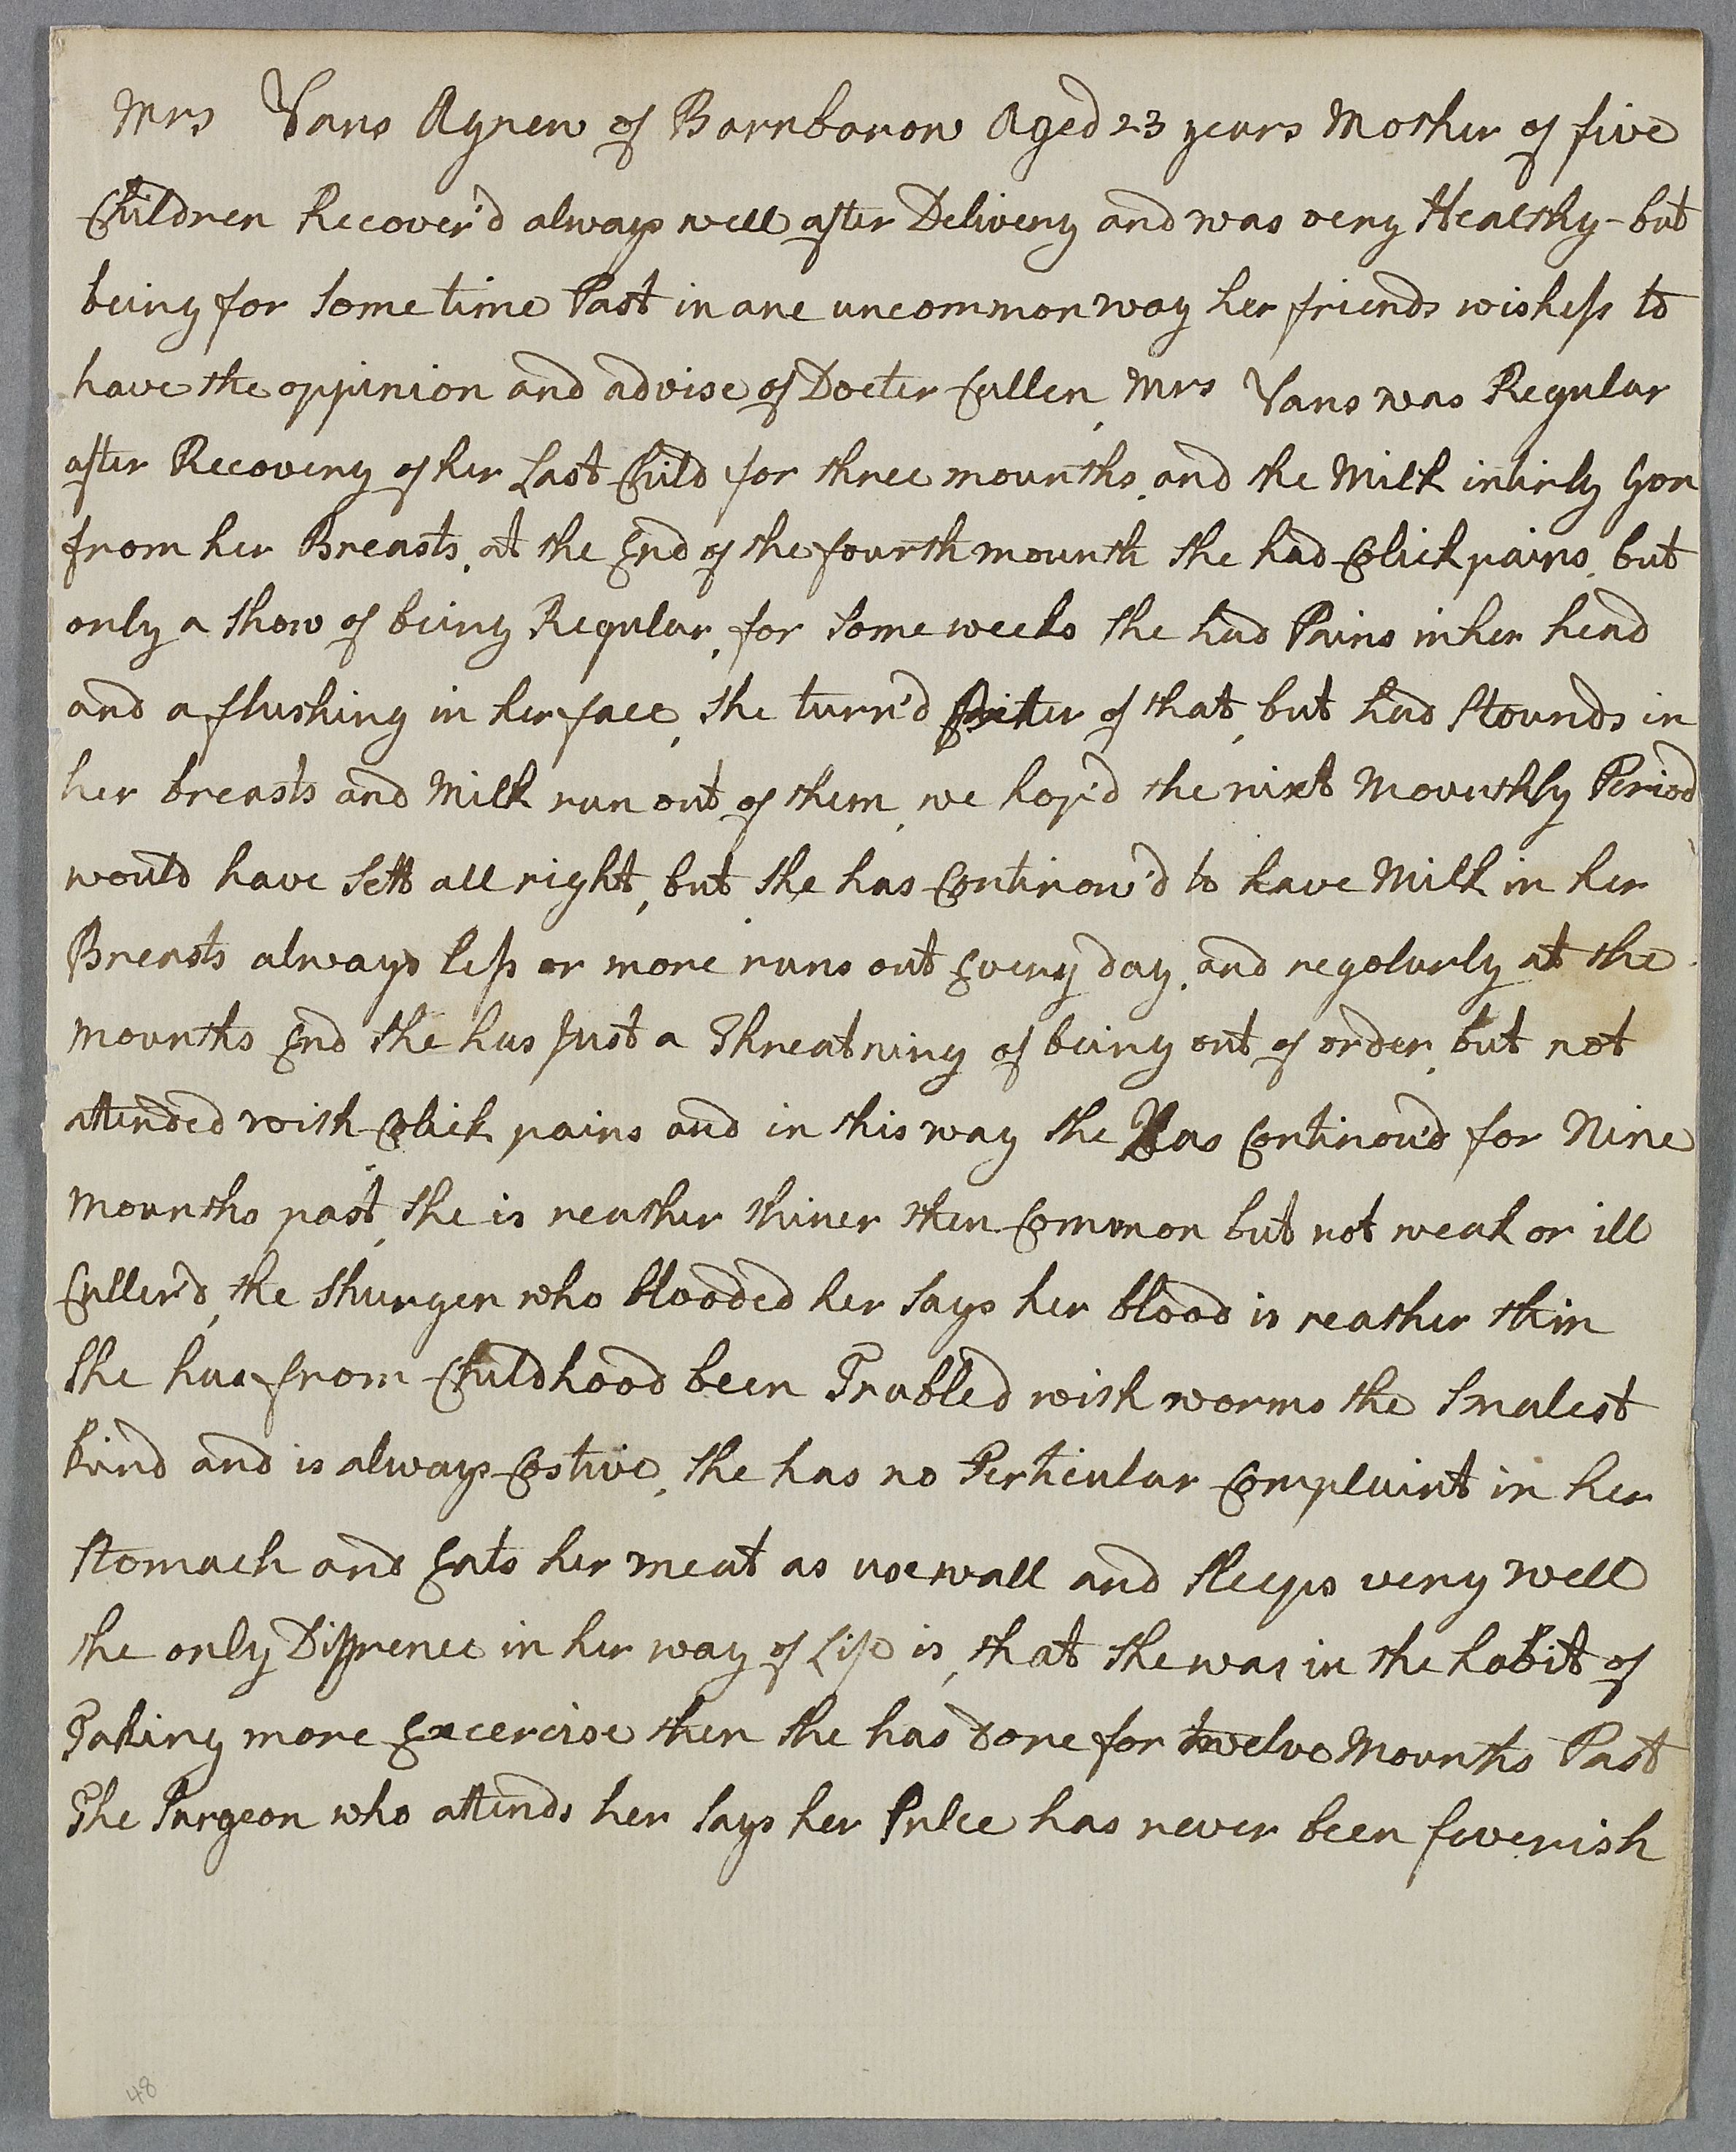 Mrs Vans Agnew of Barnbarow Aged 23 years Mother of five
Children Recover'd always well after Delivery and was very Healthy - but
being for some time Past in ane uncommon way her friends wishess to
have the oppinion and advise of Docter Cullen, Mrs Vans was Regular
after Recovery of her Last Child for three mounths, and the Milk intirly Gon
from her Breasts, at the End of the fourth mounth she had Colick pains, but
only a show of being Regular, for some weeks she had Pains in her head
and a flushing in her face, she turn'd Better of that, but had stounds in
her breasts and Milk run out of them, we hop'd the nixt Mounthly Period
would have sett all right, but she has Continow'd to have Milk in her
Breasts always less or more runs out Every day, and regolarly at the
mounths End she has Just a Threatning of being out of order, but not
attended with Colick pains and in this way she Has Continou'd for Nine
Mounths past, she is reather thiner then Common but not weak or ill
Culler'd, the Shurgen who blooded her says her blood is reather thin
she has from Childhood been Trubled with worms the smalest
kind and is always Costive, she has no Perticular Complaint in her
stomach and Eats her meat as usewall and sleeps very well
the only Diffrence in her way of Life is, that she was in the habit of
Taking more Excercise then she has done for twelve Mounths Past
The Surgeon who attends her says her Pulce has never been feverish
48